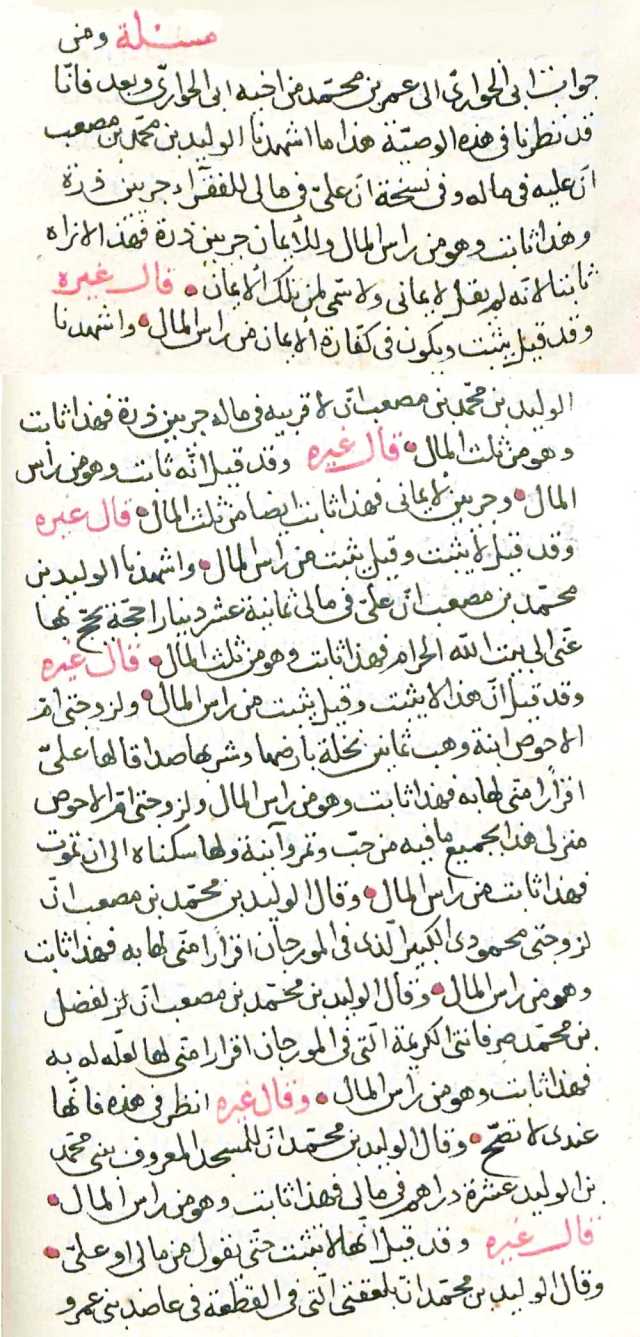 مسئلة ومن
جواب ابى الحواريّ الى عمر بن محمّد من اخيه ابى الحواريّ وبعد فانّا
قد نظرنا فى هذه الوصيّة هذا ما اشهدنا الوليد بن محمّد بن مصعب
انّ عليه فى ماله وفى نسخة انّ علىّ فى مالى للفقرآء جريبى ذرة
وهذا ثابت وهو من راس المال وللأيمان جريبى ذرة فهذا لا نراه
ثابتا لانّه لم يقل لايمانى ولا سمّى لمن تلك الأيمان قال غيره
وقد قيل يثبت ويكون فى كفّارة الأيمان من راس المال واشهدنا
الوليد بن محمّد بن مصعب انّ لاقربيه فى ماله جريبى ذرة فهذا ثابت
وهو من ثلث المال قال غيره وقد قيل انّه ثابت وهو من راس
المال وجريبى لايمانى فهذا ثابت ايضا من ثلث المال قال غيره
وقد قيل لا يثبت وقيل يثبت من راس المال واشهدنا الوليد بن
محمّد بن مصعب انّ علىّ فى مالى ثمانية عشر دينارا حجّة يحجّ بها
عنّى الى بيت الله الحرام فهذا ثابت وهو من ثلث المال قال غيره
وقد قيل انّ هذا لا يثبت وقيل يثبت من راس المال ولزوجتى امّ
الاحوص ابنة وهب ثمانين نخلة بارضها وشربها صداقا لها علىّ
اقرارا منّى لها به فهذا ثابت وهو من راس المال ولزوجتى امّ الاحوص
منزلى هذا بجميع ما فيه من حبّ وتمر وآنية ولها سكناه الى ان تموت
فهذا ثابت من راس المال وقال الوليد بن محمّد بن مصعب انّ
لزوجتى محمودى الكبير الّذى فى المورجان اقرارا منّى لها به فهذا ثابت
وهو من راس المال وقال الوليد بن محمّد بن مصعب انّ لفضل
بن محمّد صرفانتى الكريمة الّتى فى المورجان اقرارا منّى لها لعلّه له به
فهذا ثابت وهو من راس المال وقال غيره انظر فى هذه فانّها
عندى لا تصحّ وقال الوليد بن محمّد انّ للمسجد المعروف ببنى محمّد
بن الوليد عشرة دراهم فى مالى فهذا ثابت وهو من راس المال
قال غيره وقد قيل انّها لا تثبت حتّى يقول من مالى او علىّ
وقال الوليد بن محمّد انّ بلعقتى الّتى فى القطعة فى عاضد بنى عمرو